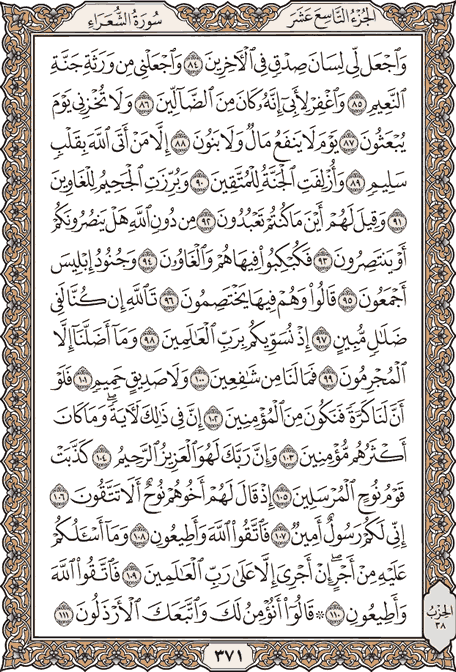 الجزء التاسع عشر
سورة الشعراء
وَٱجۡعَل لِّي لِسَانَ صِدۡقٖ فِي ٱلۡأٓخِرِينَ ٨٤ وَٱجۡعَلۡنِي مِن وَرَثَةِ جَنَّةِ
ٱلنَّعِيمِ ٨٥ وَٱغۡفِرۡ لِأَبِيٓ إِنَّهُۥ كَانَ مِنَ ٱلضَّآلِّينَ ٨٦ وَلَا تُخۡزِنِي يَوۡمَ
يُبۡعَثُونَ ٨٧ يَوۡمَ لَا يَنفَعُ مَالٞ وَلَا بَنُونَ ٨٨ إِلَّا مَنۡ أَتَى ٱللَّهَ بِقَلۡبٖ
سَلِيمٖ ٨٩ وَأُزۡلِفَتِ ٱلۡجَنَّةُ لِلۡمُتَّقِينَ ٩٠ وَبُرِّزَتِ ٱلۡجَحِيمُ لِلۡغَاوِينَ
٩١ وَقِيلَ لَهُمۡ أَيۡنَ مَا كُنتُمۡ تَعۡبُدُونَ ٩٢ مِن دُونِ ٱللَّهِ هَلۡ يَنصُرُونَكُمۡ
أَوۡ يَنتَصِرُونَ ٩٣ فَكُبۡكِبُواْ فِيهَا هُمۡ وَٱلۡغَاوُۥنَ ٩٤ وَجُنُودُ إِبۡلِيسَ
أَجۡمَعُونَ ٩٥ قَالُواْ وَهُمۡ فِيهَا يَخۡتَصِمُونَ ٩٦ تَٱللَّهِ إِن كُنَّا لَفِي
ضَلَٰلٖ مُّبِينٍ ٩٧ إِذۡ نُسَوِّيكُم بِرَبِّ ٱلۡعَٰلَمِينَ ٩٨ وَمَآ أَضَلَّنَآ إِلَّا
ٱلۡمُجۡرِمُونَ ٩٩ فَمَا لَنَا مِن شَٰفِعِينَ ١٠٠ وَلَا صَدِيقٍ حَمِيمٖ ١٠١ فَلَوۡ
أَنَّ لَنَا كَرَّةٗ فَنَكُونَ مِنَ ٱلۡمُؤۡمِنِينَ ١٠٢ إِنَّ فِي ذَٰلِكَ لَأٓيَةٗۖ وَمَا كَانَ
أَكۡثَرُهُم مُّؤۡمِنِينَ ١٠٣ وَإِنَّ رَبَّكَ لَهُوَ ٱلۡعَزِيزُ ٱلرَّحِيمُ ١٠٤ كَذَّبَتۡ
قَوۡمُ نُوحٍ ٱلۡمُرۡسَلِينَ ١٠٥ إِذۡ قَالَ لَهُمۡ أَخُوهُمۡ نُوحٌ أَلَا تَتَّقُونَ ١٠٦
إِنِّي لَكُمۡ رَسُولٌ أَمِينٞ ١٠٧ فَٱتَّقُواْ ٱللَّهَ وَأَطِيعُونِ ١٠٨ وَمَآ أَسۡـَٔلُكُمۡ
عَلَيۡهِ مِنۡ أَجۡرٍۖ إِنۡ أَجۡرِيَ إِلَّا عَلَىٰ رَبِّ ٱلۡعَٰلَمِينَ ١٠٩ فَٱتَّقُواْ ٱللَّهَ
وَأَطِيعُونِ ١١٠ ۞ قَالُوٓاْ أَنُؤۡمِنُ لَكَ وَٱتَّبَعَكَ ٱلۡأَرۡذَلُونَ ١١١
الحزب
٣٨
٣٧١